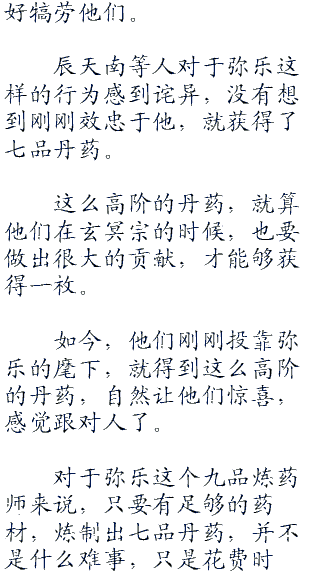 好犒劳他们。
辰天南等人对于弥乐这
样的行为感到诧异，没有想
到刚刚效忠于他，就获得了
七品丹药。
这么高阶的丹药，就算
他们在玄冥宗的时候，也要
做出很大的贡献，才能够获
得一枚。
如今，他们刚刚投靠弥
乐的麾下，就得到这么高阶
的丹药，自然让他们惊喜，
感觉跟对人了。
对于弥乐这个九品炼药
师来说，只要有足够的药
材，炼制出七品丹药，并不
是什么难事，只是花费时